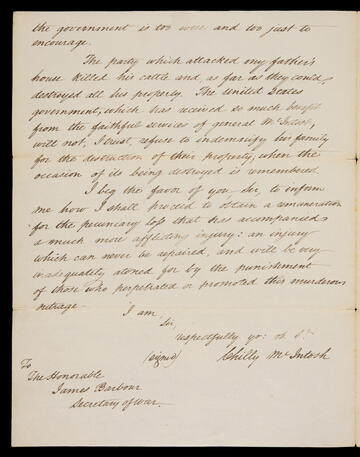 the government is too wise and too just to
encourage.
The party which attacked my father's
house killed his cattle and, as far as they could,
destroyed all his property. The United States
government, which has received so much benefit
from the faithful services of general McIntosh,
will not, I trust, refuse to indemnify his family
for the destruction of their property, when the
occasion of its being destroyed is remembered.
I beg the favor of you Sir, to inform
me how I shall proceed to obtain a remuneration
for the pecuniary loss that has accompanied
a much more afflicting injury: an injury
which can never be repaired, and will be very
inadequately atoned for by the punishment
of those who perpetrated or promoted this murderous
outrage.
I am,
Sir,
respectfully yo: ob St.
(signed) Chilly McIntosh
To
The Honorable
James Barbour
Secretary of War.